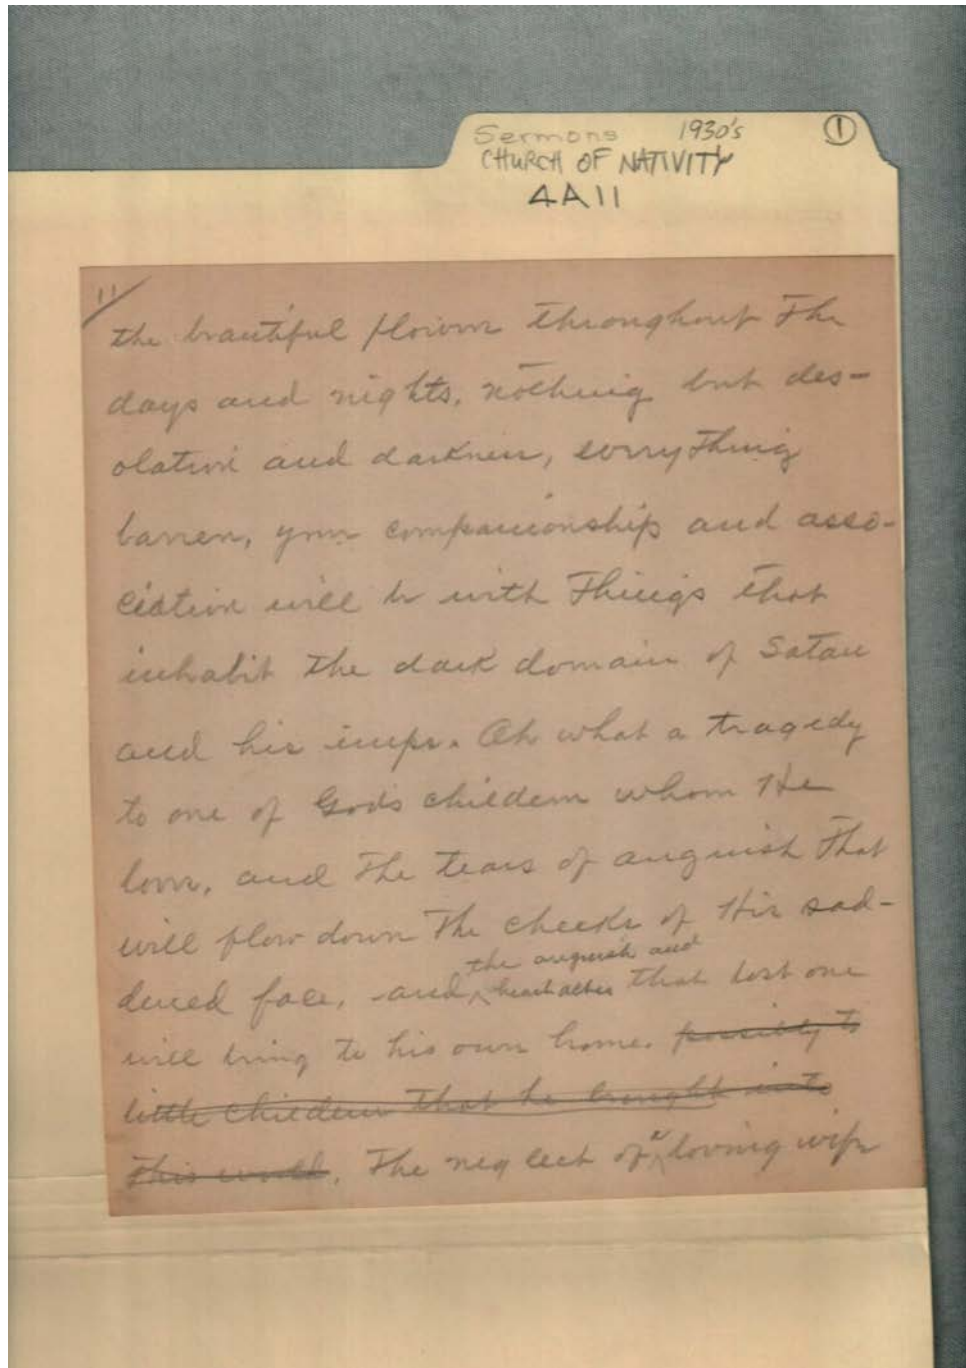 Sermons 1930's ①
CHURCH OF NATIVITY
4A11
11/
the beautiful flowers throughout the
days and nights, nothing but des-
olation and darkness, everything
barren, your companionship and asso-
ciation will be with things that
inhabit the dark domain of Satan
and his imps. Oh what a tragedy
to one of God's children whom He
loves, and the tears of anguish that
will flow down the cheeks of His sad-
dened face, and
the anguish and
heartaches that lost one
will bring to his own home. possibly to
little children that he brought into
this world. The neglect of a loving wife